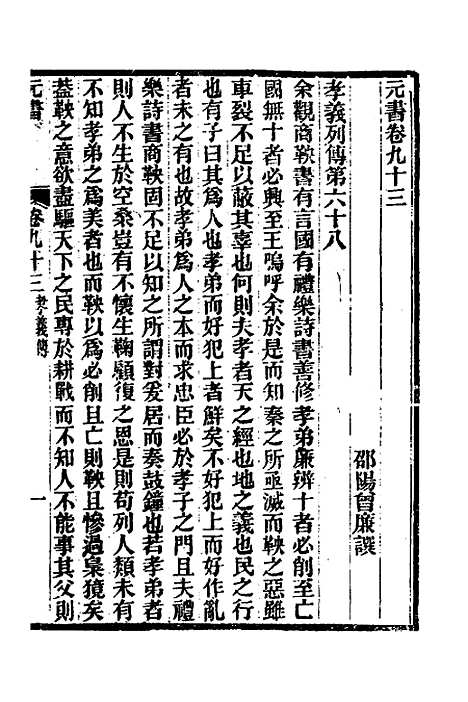 元書卷九十三
邵陽曾廉譔
孝義列傳第六十八
余觀商鞅書有言國有禮樂詩書善修孝弟廉辨十者必削至亡
國無十者必興至王嗚呼余於是而知秦之所亟滅而鞅之惡雖
車裂不足以蔽其辜也何則夫孝者天之經也地之義也民之行
也有子曰其爲人也孝弟而好犯上者鮮矣不好犯上而好作亂
者未之有也故孝弟爲人之本而求忠臣必於孝子之門且夫禮
樂詩書商鞅固不足以知之所謂對爰居而奏鼓鐘也若孝弟者
則人不生於空桑豈有不懷生鞠顧復之恩是則苟列人類未有
不知孝弟之爲美者也而鞅以爲必削且亡則鞅且慘過梟獍矣
葢鞅之意欲盡驅天下之民專於耕戰而不知人不能事其父則
元書
卷九十三 孝義傳
一